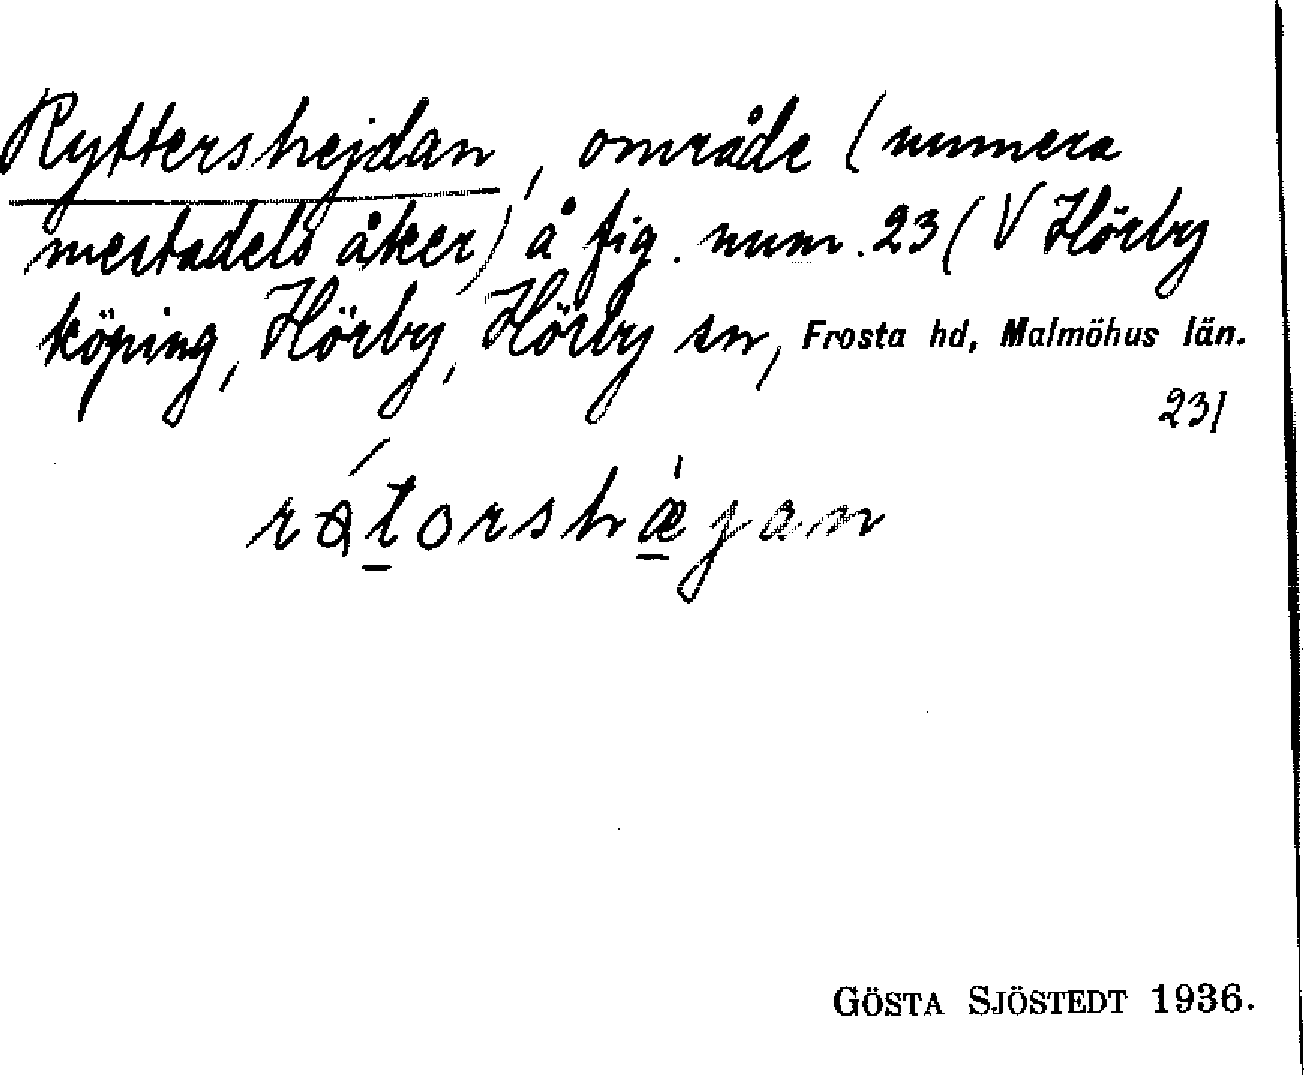 Ryttershejdan, område (numera
mestadels åker) å fig. num. 23 (V Hörby
köping, Hörby, Hörby sn, Frosta hd, Malmöhus län.
231
GÖSTA SJÖSTEDT 1936.